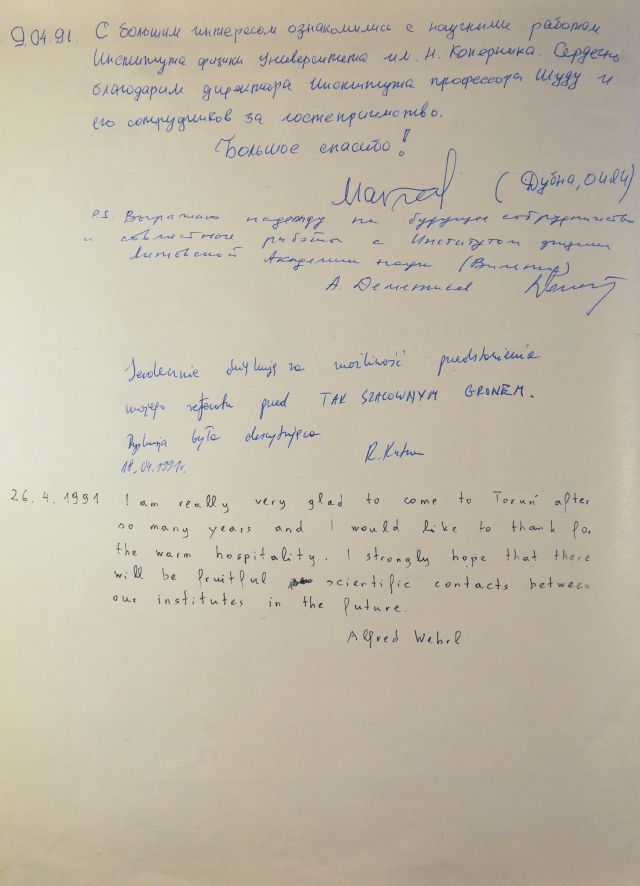 9.04.91. С большим интересом ознакомились с научными работами
Института физики Университета им. Н. Коперника. Сердечно
благодарим директора Института профессора Шуду и
его сотрудников за гостеприимство.
Большое спасибо!
(Дубна, ОИЯИ)
P.S. Выражаю надежду на будущее сотрудничество
и совместные работы с Институтом физики
Литовской Академии наук (Вильнюс)
А.
Serdecznie dziękuję za możliwość przedstawienia
mojego referatu przed TAK SZACOWNYM GRONEM.
Dyskusja była
18.04.1991r. R.
26.4.1991 I am really very glad to come to Toruń after
so many years and I would like to thank for
the warm hospitality. I strongly hope that there
will be fruitful scientific contacts between
our institutes in the future.
Alfred Wehrl